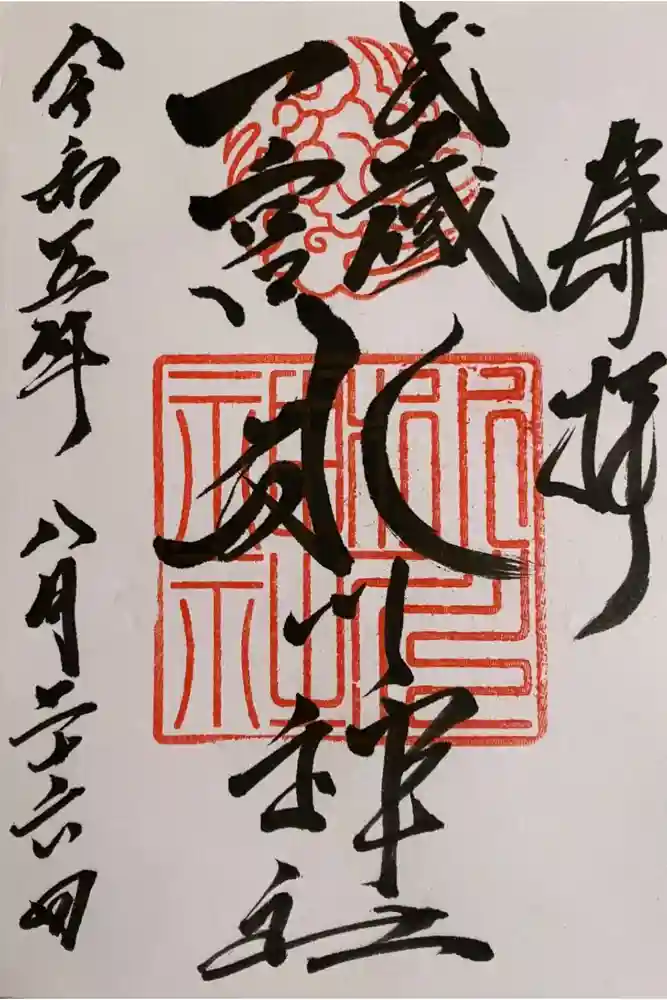 奉拝
武蔵
一宮
氷川神社
令和五年 八月二十六日